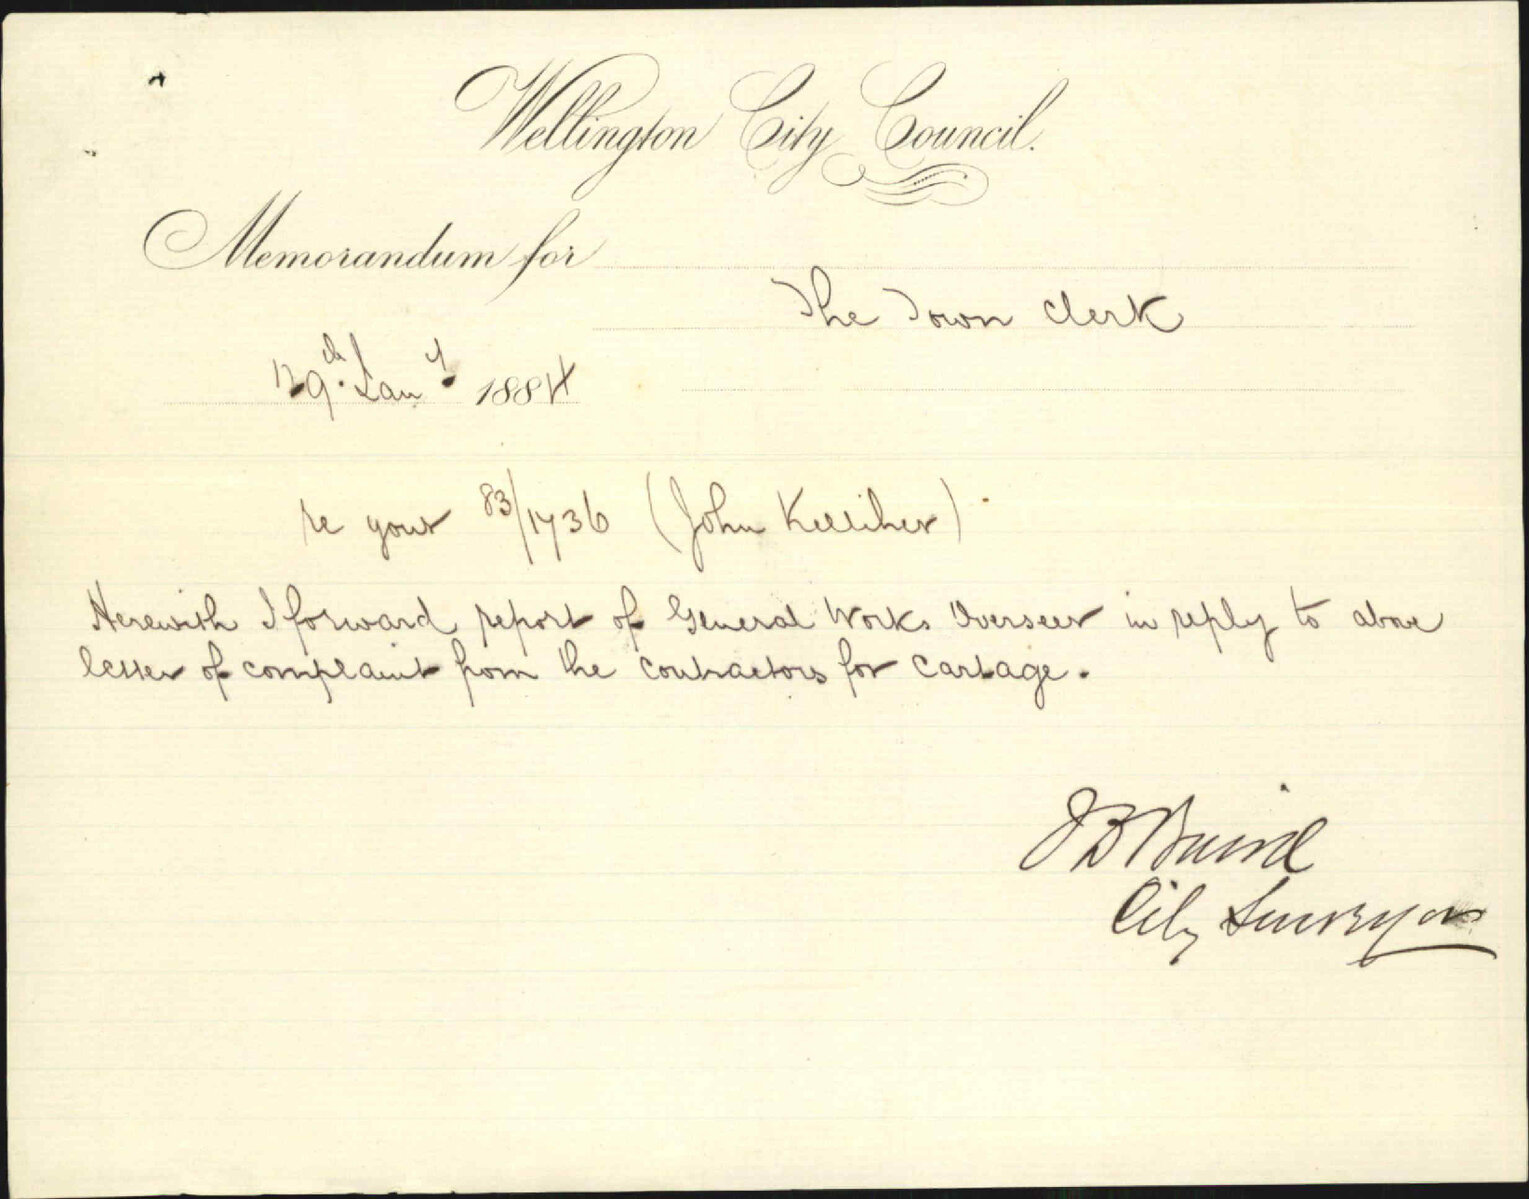 Wellington City Council.
Memorandum for
The Town Clerk
29th Jany 1884
re your 83/1736 (John Kelliher)
Herewith I forward report of General Works Overseer in reply to above
letter of complaint from the contractors for Cartage.
J B Baird
City Surveyor